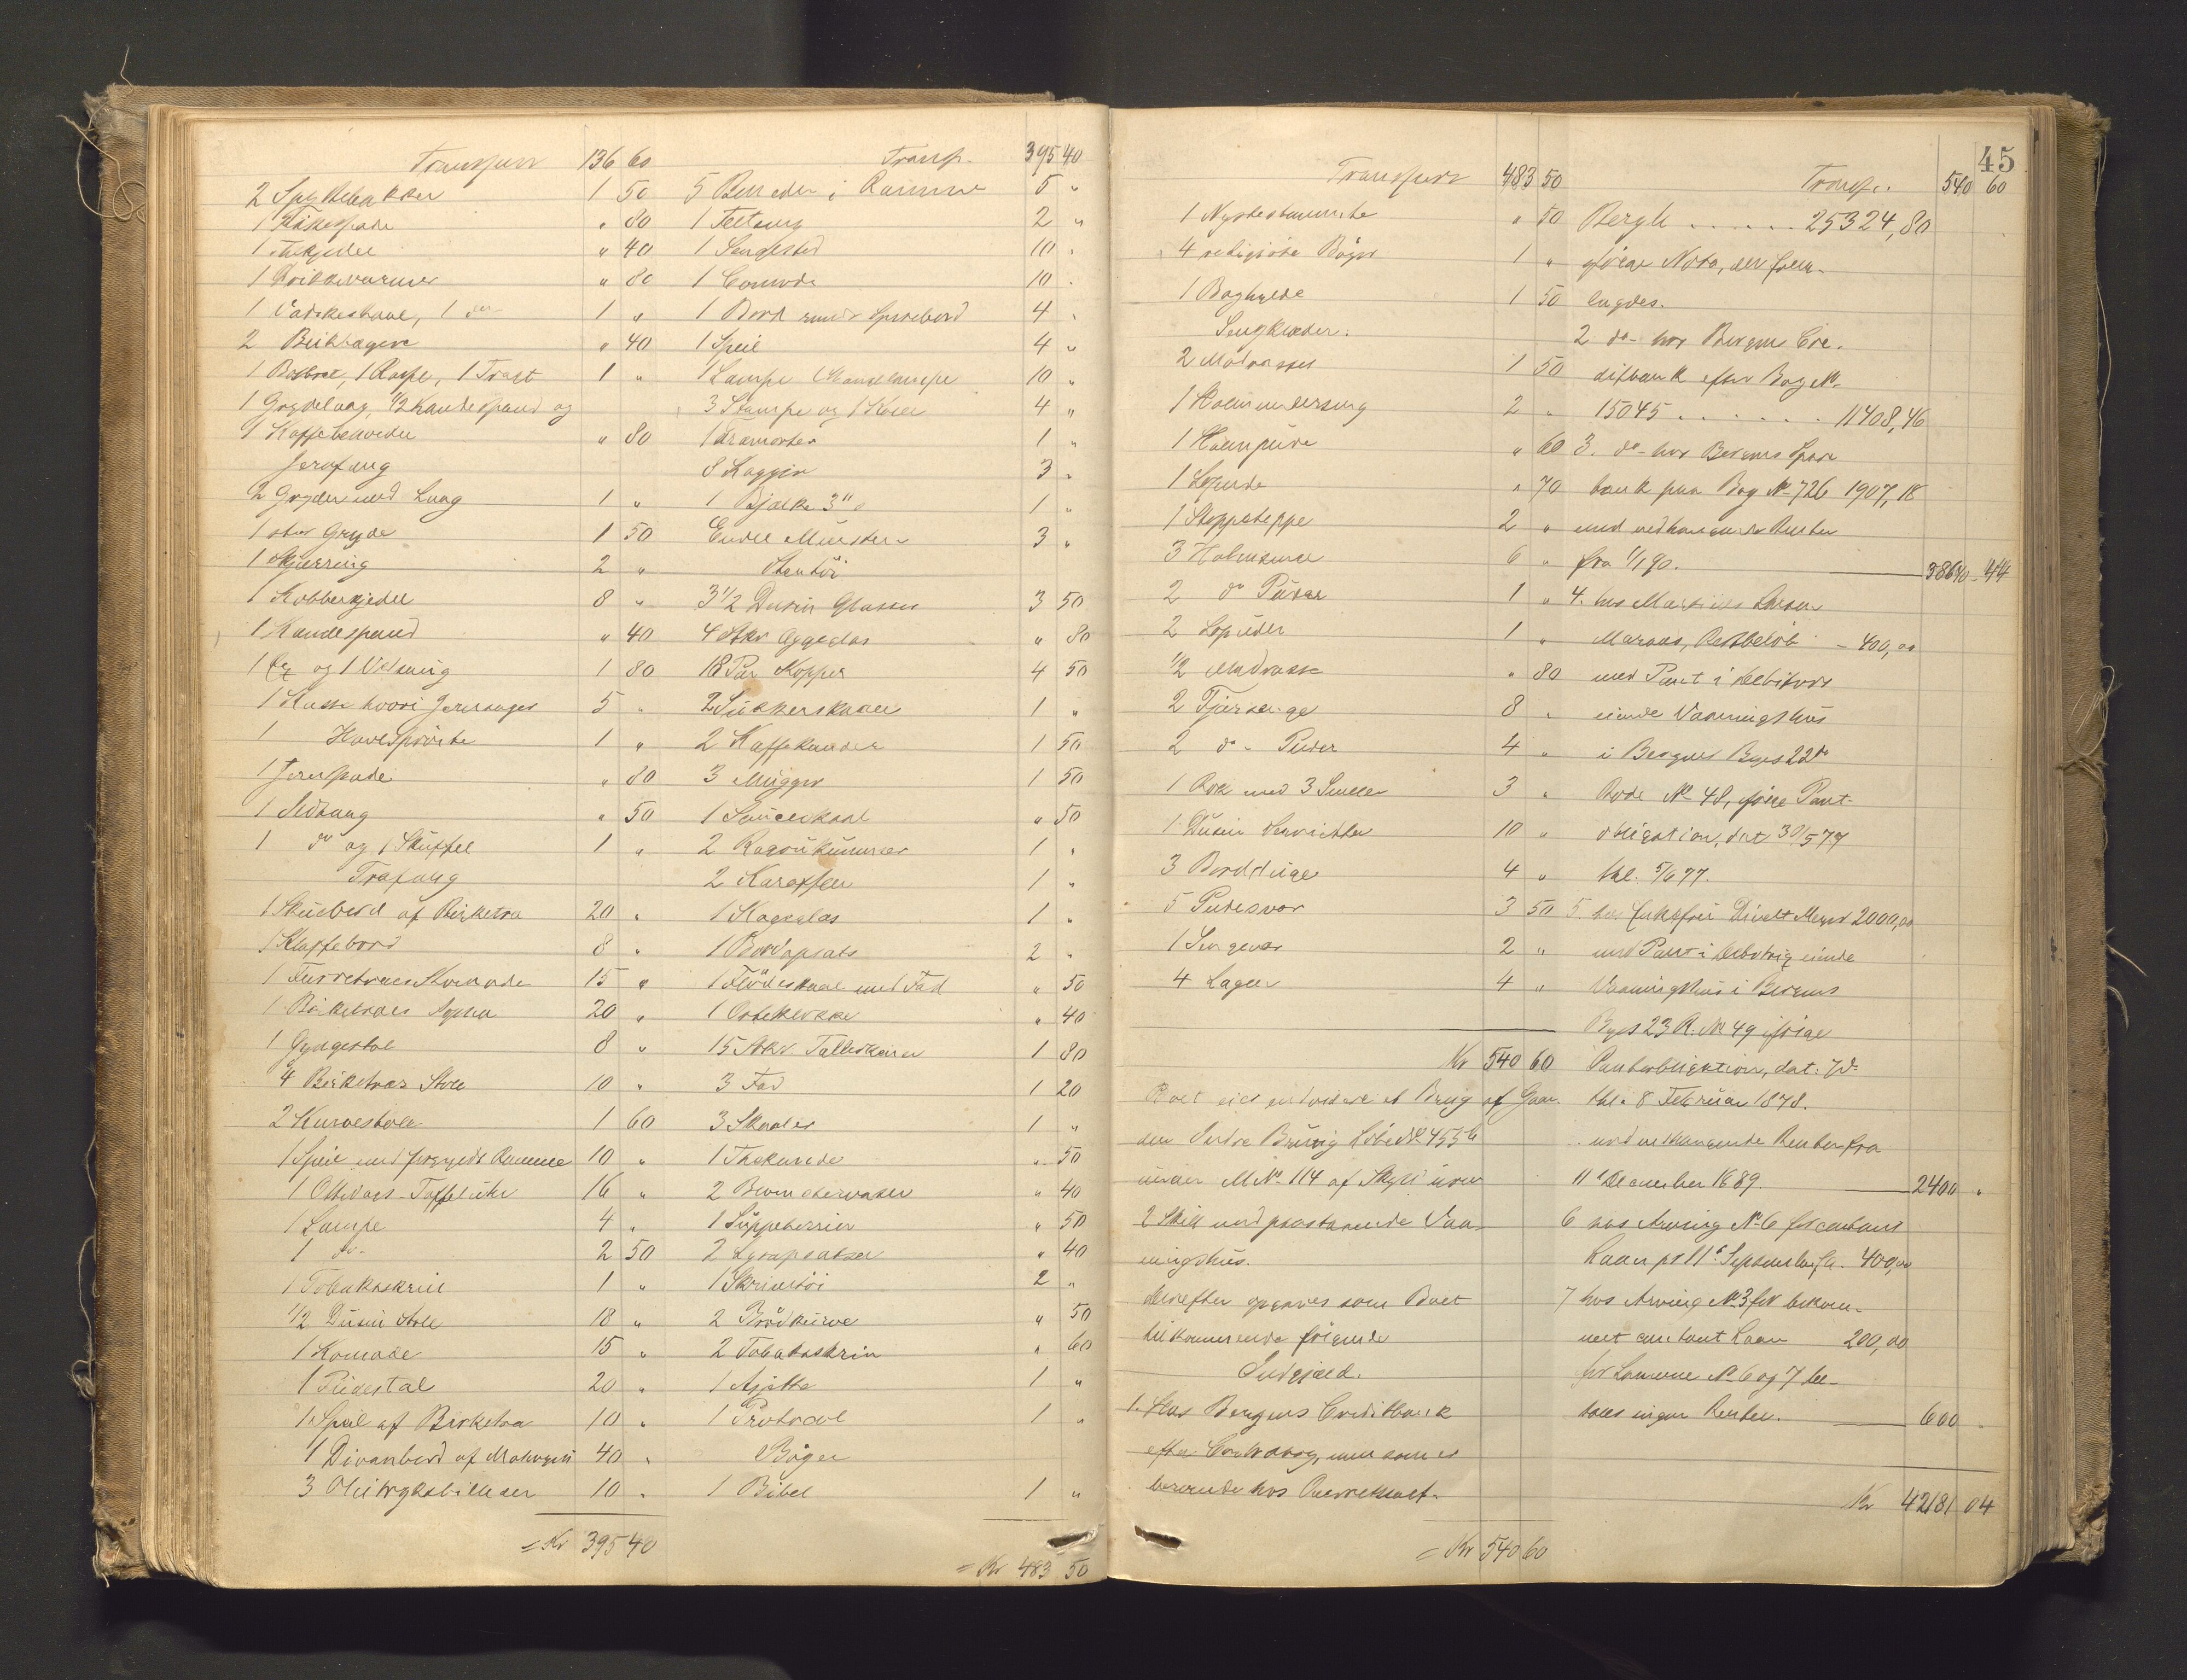 Transport 136 60
2 Spyttebakker 1 50
1 Fiskespade " 80
1 Thekjedel " 40
1 " 80
1 Vadskeskaal, 1 do 1 "
2 " 40
1 1 Raspe, 1 Tragt 1 "
1 1/2 Kandespand og
1 Kaffebeholder " 80
Jernfang
2 Gryder med Laag 1 "
1 stor Gryde 1 50
1 2 "
1 Kobberkjedel 8 "
1 Kandespand " 40
1 og 1 1 80
1 Kasse hvori 5 "
1 Havesprøite 1 "
1 Jernspade " 80
1 " 50
1 do og 1 Skuffel 1 "
Træfang
1 af Birketræ 20 "
1 Klaffebord 8 "
1 Furretræes Komode 15 "
1 Birketræes 20 "
1 Gyngestol 8 "
4 Birketræs Stole 10 "
2 Kurvestole 1 60
1 Speil med forgyldt Ramme 10 "
1 Ottedags Taffeluhr 16 "
1 Lampe 4 "
1 do 2 50
1 Tobaksskrin 1 "
1/2 Dusin Stole 18 "
1 Komode 15 "
1 Pidestal 20 "
1 Speil af Birketræ 10 "
1 Divanbord af Mahogni 40 "
3 Olietryksbilleder 10 "
= Kr 395 40
Transp. 395 40
5 Billeder i Ramme 5 "
1 2 "
1 Sengested 10 "
1 Comode 10 "
1 Bord rundt Spisebord 4 "
1 Speil 4 "
1 Lampe 10 "
3 Stampe og 1 4 "
1 1 "
8 Lagger 3 "
1 Bjælke 3" 1 "
Endel 3 "
Stentöi
3 1/2 Dusin Glasser 3 50
4 Stkr Æggeglas " 80
18 Par Kopper 4 50
2 Sukkerskaaler 1 "
2 Kaffekander 1 50
3 Mugger 1 50
1 Sauceskaal " 50
2 Ragoukummer 1 "
2 Karafler 1 "
1 Kageglas 1 "
1 Bordopsats 2 "
1 Flödeskaal med Fad " 50
1 Osteklokke " 40
15 Stkr. Tallerkener 1 80
3 Fad 1 20
3 Skaaler 1 "
1 Thekande " 50
2 Blomstervaser " 40
1 Suppeterrin " 50
2 " 40
1 Skrivetöi 2 "
2 Brödkurve " 50
2 Tobaksskrin " 60
1 1 "
1 1 "
Böger
1 Bibel 1 "
= Kr 483 50
45
Transport 483 50
1 " 50
4 religiöse Böger 1 "
1 Boghylde 1 50
Sengklæder.
2 Matrasser 1 50
1 Halmunderseng 2 "
1 Halmpude " 60
1 " 70
1 Stoppeteppe 2 "
3 6 "
2 do Puder 1 "
2 1 "
1/2 Madrasse " 80
2 Fjærsenge 8 "
2 do Puder 4 "
1 Rok med 3 Sneller 3 "
1 Dusin Servietter 10 "
3 Bordduge 4 "
5 Pudesvar 3 50
1 Sengevar 2 "
4 Lagen 4 "
Kr 540 60
Boet eier endvidere et Brug af Gaar-
den Indre Löbe No 455 b
under M No 114 af Skyld
2 Skill med paastaaende Vaa-
ningshus.
Derefter opgaves som Boet
tilkommende følgende
Indgjæld.
1. Hos Bergens Creditbank
efter men som er
beroende hos
= Kr 540 60
Transp. 540 60
Bergh ...... 25324,80
ifölge Nota, der frem-
lagdes.
2 do hos Bergens Cre-
ditbank efter Bog No
15045 ...... 11408,46
3. do hos Bergens Spare
bank paa Bog No 726 1907,18
med vedhængende Renter
fra 1/1 90. 38640 44
4. hos Martinus Larsen
Restbelöb - 400,00
med Pant i Debitors
eiende Vaaningshus
i Bergens Byes 22de
Rode No 48, ifölge Pant-
obligation, dat 30/5 77
thl. 5/6 77.
5 hos Meyer 2000,00
med Pant i eiende
Vaaningshus i Bergens
Byes 23 R. No 49 ifölge
Panteobligation, dat. 7de
thl. 8 Februar 1878.
med vedhængende Renter fra
11 December 1889. 2400 "
6 hos Arving No 6 for contant
Laan pr 11 September 400,00
7 hos Arving No 3 for bekom-
met contant Laan 200,00
for Laanene No 6 og 7 be-
tales ingen Renter. 600 "
Kr 42181 04